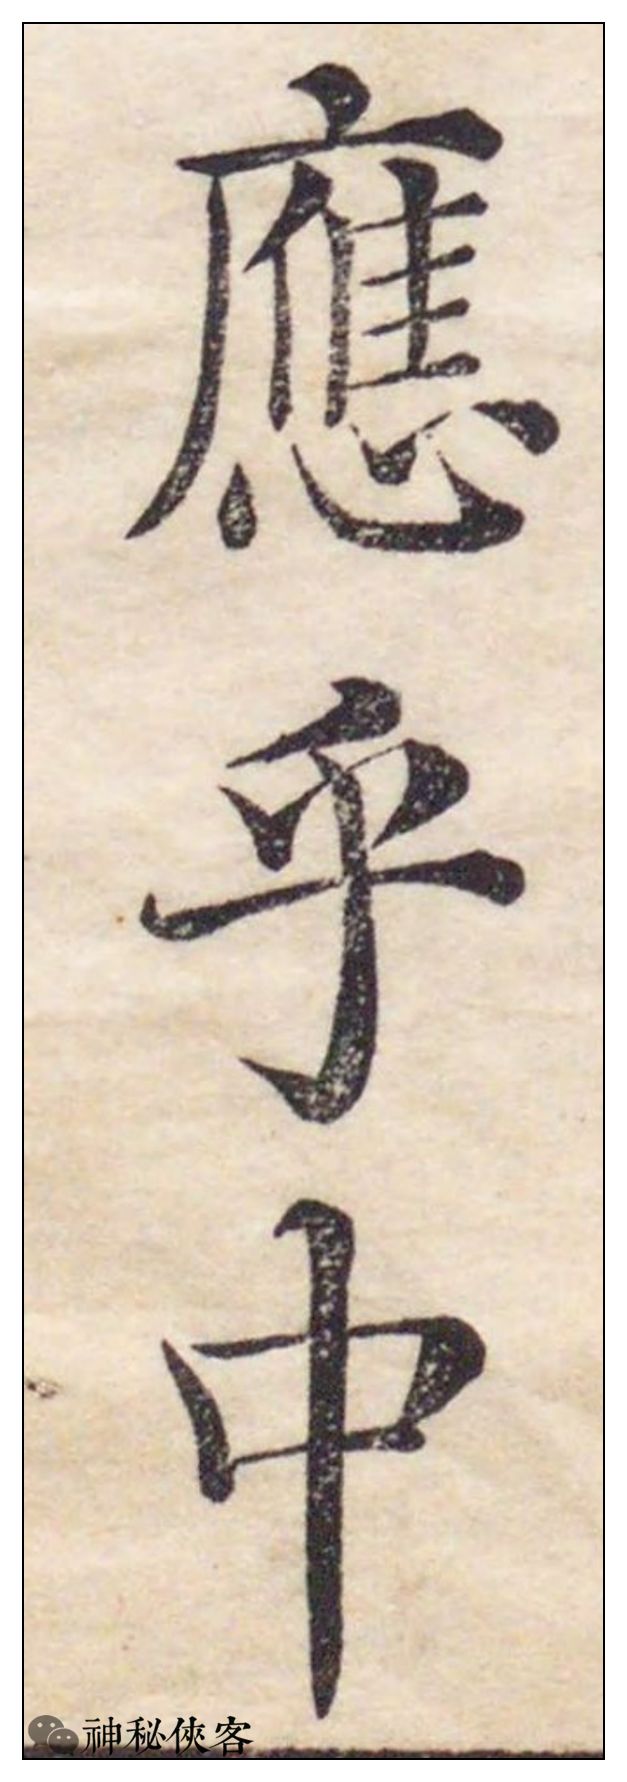 應乎中
神秘俠客